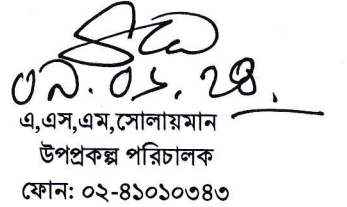 ০৯.০১.২৪.
এ,এস,এম,সোলায়মান
উপপ্রকল্প পরিচালক
ফোন: ০২-৪১০১০৩৪৩